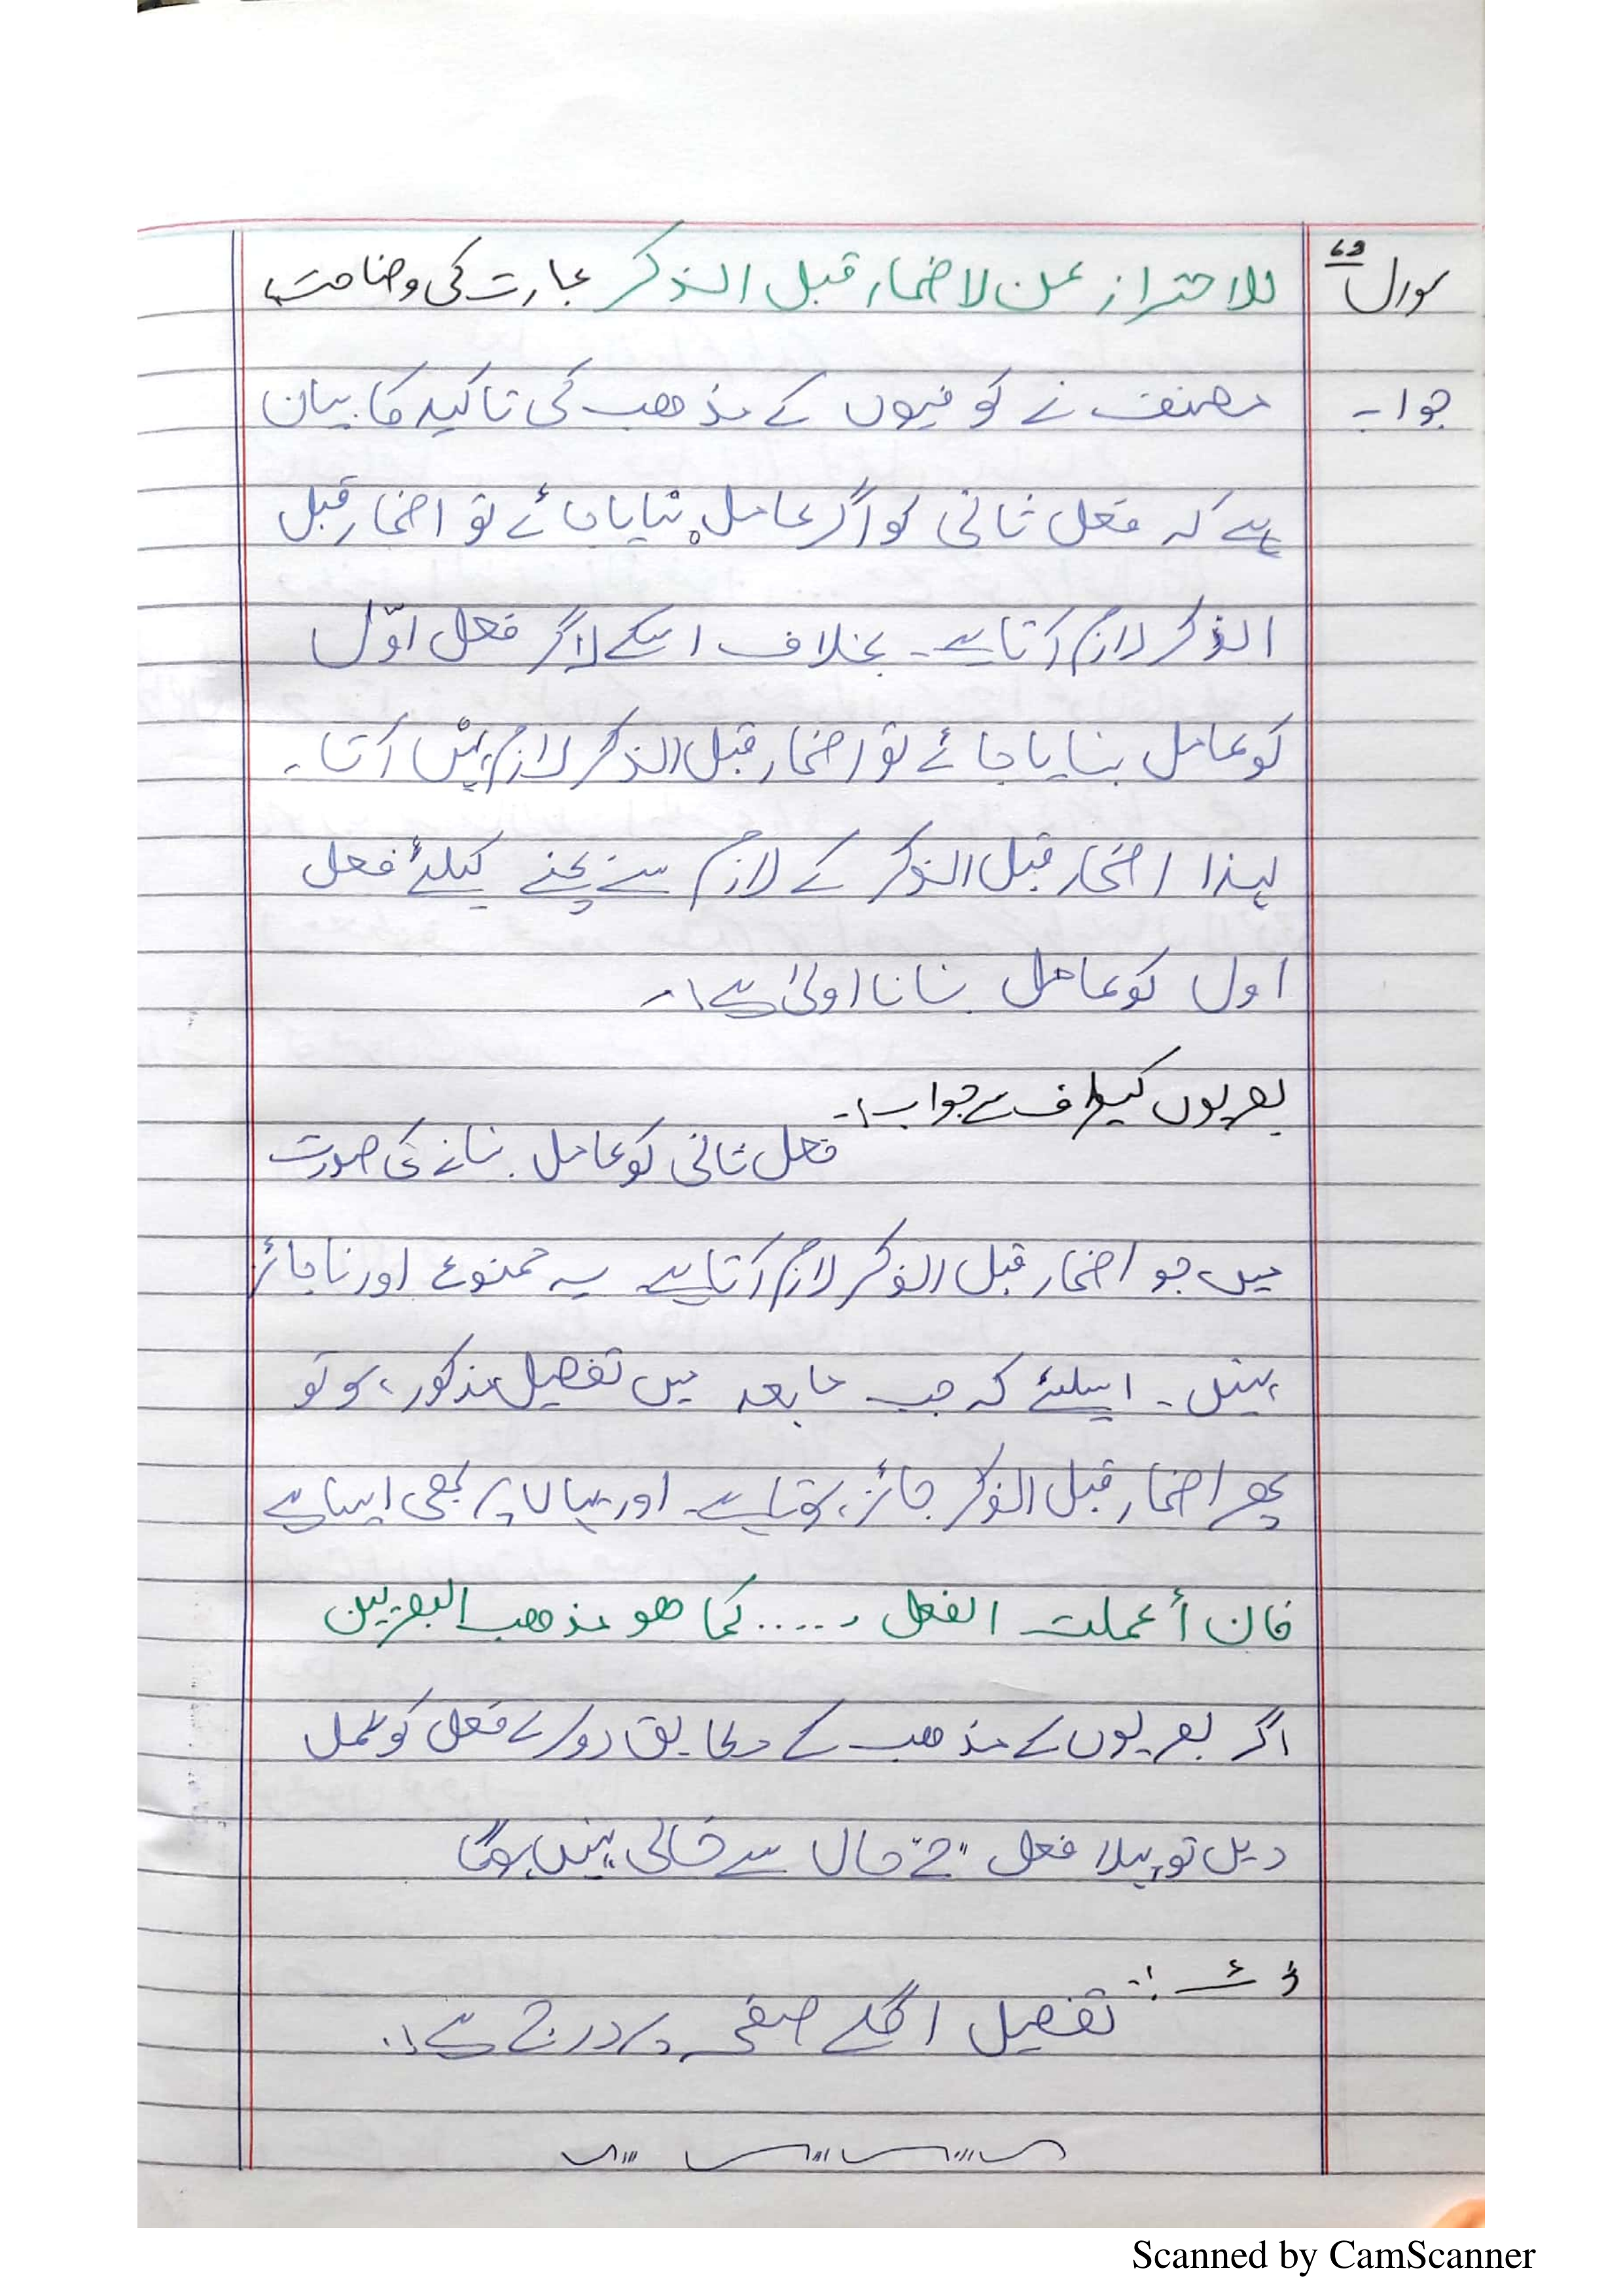 سوال ۶۹ للاحتراز عن لاضمار قبل الذکر عبارت کی وضاحت؟
جواب۔ مصنف نے کوفیوں کے مذھب کی تاکید کا بیان
ہے کہ فعل ثانی کو اگر عامل بنایا جائے تو اضمار قبل
الذکر لازم آتا ہے۔ بخلاف اسکے اگر فعل اوّل
کو عامل بنایا جائے تو اضمار قبل الذکر لازم نہیں آتا۔
لہذا اضمار قبل الذکر کے لازم سے بچنے کیلئے فعل
اول کو عامل بنانا اولیٰ ہے۔
بصریوں کیطرف سے جواب:۔
فعل ثانی کو عامل بنانے کی صورت
میں جو اضمار قبل الذکر لازم آتا ہے یہ ممنوع اور ناجائز
نہیں۔ اسلئے کہ جب مابعد میں تفصیل مذکور ہو تو
پھر اضمار قبل الذکر جائز ہوتا ہے اور یہاں پر بھی ایسا ہے
فان أعملت الفعل ..... کما ھو مذھب البصریین
اگر بصریوں کے مذھب کے مطابق دوسرے فعل کو عمل
دیں تو پہلا فعل حال سے خالی نہیں ہوگا
تفصیل اگلے صفحہ پر درج ہے۔
Scanned by CamScanner